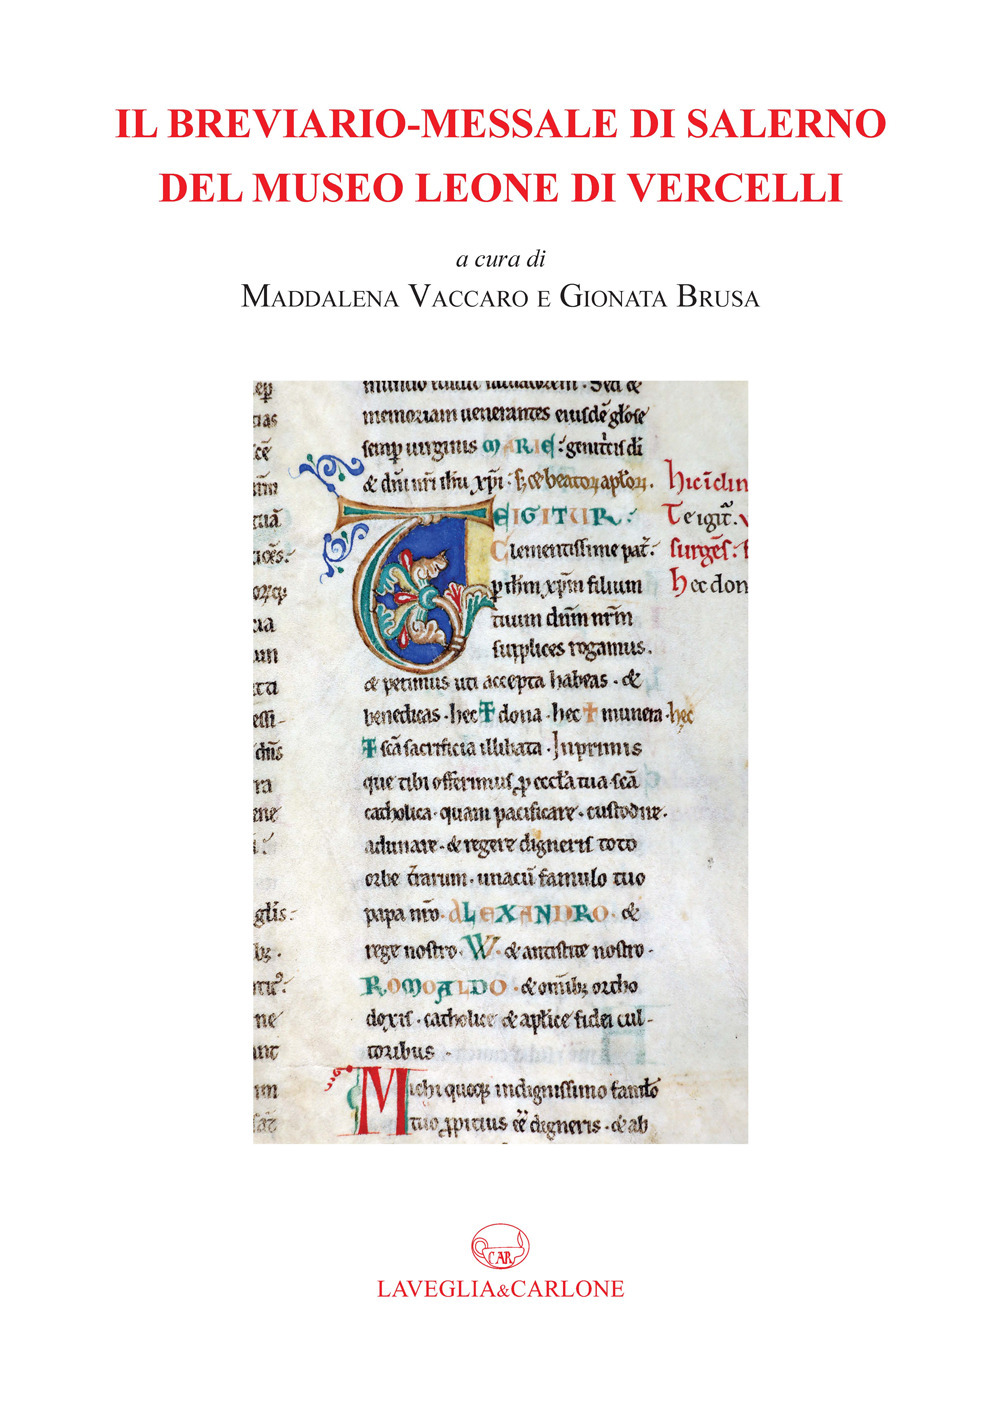 IL BREVIARIO-MESSALE DI SALERNO
DEL MUSEO LEONE DI VERCELLI
a cura di
MADDALENA VACCARO E GIONATA BRUSA
memoriam uenerantes eiusdē gl̄ose
semꝑ uirginis MARIE : genitͥcis dī
& dn̄i nr̄i ih̄u xp̄i · s; & beatoꝝ apl̄oꝝ .
TEIGITUR :
Clementissime pat̄ :
ꝑ ih̄m xp̄m filium
tuum dn̄m nr̄m
supplices rogamus .
& petimus uti accepta habeas · &
benedicas · hec ✝ dona · hec ✝ munera · hec
✝ sc̄a sacrificia illibata · Inprimis
que tibi offerimus ꝓ eccl̄a tua sc̄a
catholica · quam pacificare · custodire .
adunare · & regere digneris toto
orbe t̄rarum · unacū famulo tuo
papa nr̄o · ALEXANDRO · &
rege nostro · W · & antistite nostro ·
ROMOALDO · & omīb; ortho
doxis · catholice & aplīce fidei cul-
toribus ·
Michi quoq; indignissimo famło
tuo ꝓpitius eē digneris · & ab
hic īclin
Te igit̄ .
surgēs :
hec don
CAR
LAVEGLIA&CARLONE